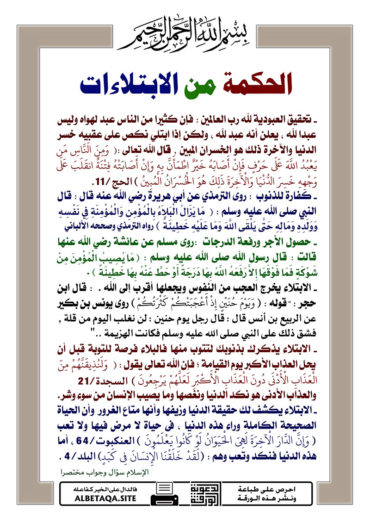 بسم الله الرحمن الرحيم
الحكمة من الابتلاءات
ـ تحقيق العبودية لله رب العالمين : فإن كثيرا من الناس عبد لهواه وليس
عبدا لله ، يعلن أنه عبد لله ، ولكن إذا ابتلي نكص على عقبيه خسر
الدنيا والآخرة ذلك هو الخسران المبين . قال الله تعالى :( وَمِنَ النَّاسِ مَن
يَعْبُدُ اللَّهَ عَلَى حَرْفٍ فَإِنْ أَصَابَهُ خَيْرٌ اطْمَأَنَّ بِهِ وَإِنْ أَصَابَتْهُ فِتْنَةٌ انقَلَبَ عَلَى
وَجْهِهِ خَسِرَ الدُّنْيَا وَالْآخِرَةَ ذَلِكَ هُوَ الْخُسْرَانُ الْمُبِينُ ) الحج /11.
ـ كفارة للذنوب : روى الترمذي عن أبي هريرة رضي الله عنه قال : قال
النبي صلى الله عليه وسلم : ( مَا يَزَالُ الْبَلَاءُ بِالْمُؤْمِنِ وَالْمُؤْمِنَةِ فِي نَفْسِهِ
وَوَلَدِهِ وَمَالِهِ حَتَّى يَلْقَى اللَّهَ وَمَا عَلَيْهِ خَطِيئَةٌ ) رواه الترمذي وصححه الألباني
ـ حصول الأجر ورفعة الدرجات :روى مسلم عن عائشة رضي الله عنها
قالت : قال رسول الله صلى الله عليه وسلم : ( مَا يُصِيبُ الْمُؤْمِنَ مِنْ
شَوْكَةٍ فَمَا فَوْقَهَا إِلاَّ رَفَعَهُ اللَّهُ بِهَا دَرَجَةً أَوْ حَطَّ عَنْهُ بِهَا خَطِيئَةً ) .
ـ الابتلاء يخرج العجب من النفوس ويجعلها أقرب إلى الله . : قال ابن
حجر : "قوله : ( وَيَوْمَ حُنَيْنٍ إِذْ أَعْجَبَتْكُمْ كَثْرَتُكُمْ ) روى يونس بن بكير
عن الربيع بن أنس قال : قال رجل يوم حنين : لن نغلب اليوم من قلة ,
فشق ذلك على النبي صلى الله عليه وسلم فكانت الهزيمة .. "
ـ الابتلاء يذكرك بذنوبك لتتوب منها فالبلاء فرصة للتوبة قبل أن
يحل العذاب الأكبر يوم القيامة ؛ فإن الله تعالى يقول : ( وَلَنُذِيقَنَّهُمْ مِنَ
الْعَذَابِ الْأَدْنَى دُونَ الْعَذَابِ الْأَكْبَرِ لَعَلَّهُمْ يَرْجِعُونَ ) السجدة/21
والعذاب الأدنى هو نكد الدنيا ونغصها وما يصيب الإنسان من سوء وشر.
ـ الابتلاء يكشف لك حقيقة الدنيا وزيفها وأنها متاع الغرور وأن الحياة
الصحيحة الكاملة وراء هذه الدنيا ، في حياة لا مرض فيها ولا تعب
( وَإِنَّ الدَّارَ الْآَخِرَةَ لَهِيَ الْحَيَوَانُ لَوْ كَانُوا يَعْلَمُونَ ) العنكبوت/ 64 ، أما
هذه الدنيا فنكد وتعب وهم : ( لَقَدْ خَلَقْنَا الْإِنسَانَ فِي كَبَدٍ ) البلد/ 4 .
الإسلام سؤال وجواب مختصرا
احرص على طباعة
ونشر هذه الورقة
الدال على الخير كفاعله
ALBETAQA.SITE